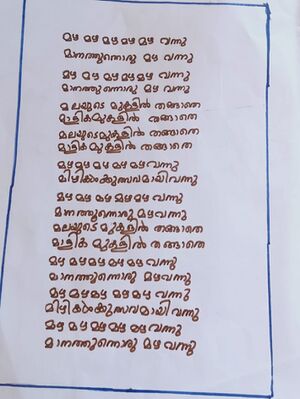 മഴ മഴ മഴ മഴ മഴ വന്നു
മാനത്തുന്നൊരു മഴ വന്നു
മഴ മഴ മഴ മഴ മഴ വന്നു
മാനത്തുന്നൊരു മഴ വന്നു
മലയുടെ മുകളിൽ തങ്ങാതെ
മാളികമുകളിൽ തങ്ങാതെ
മലയുടെ മുകളിൽ തങ്ങാതെ
മാളികമുകളിൽ തങ്ങാതെ
മഴ മഴ മഴ മഴ മഴ വന്നു
മിഴികൾക്കുത്സവമായി വന്നു
മഴ മഴ മഴ മഴ മഴ വന്നു
മാനത്തുന്നൊരു മഴ വന്നു
മലയുടെ മുകളിൽ തങ്ങാതെ
മാളിക മുകളിൽ തങ്ങാതെ
മഴ മഴ മഴ മഴ മഴ വന്നു
മാനത്തുന്നൊരു മഴ വന്നു
മഴ മഴ മഴ മഴ മഴ വന്നു
മിഴികൾക്കുത്സവമായി വന്നു
മഴ മഴ മഴ മഴ മഴ വന്നു
മാനത്തുന്നൊരു മഴ വന്നു